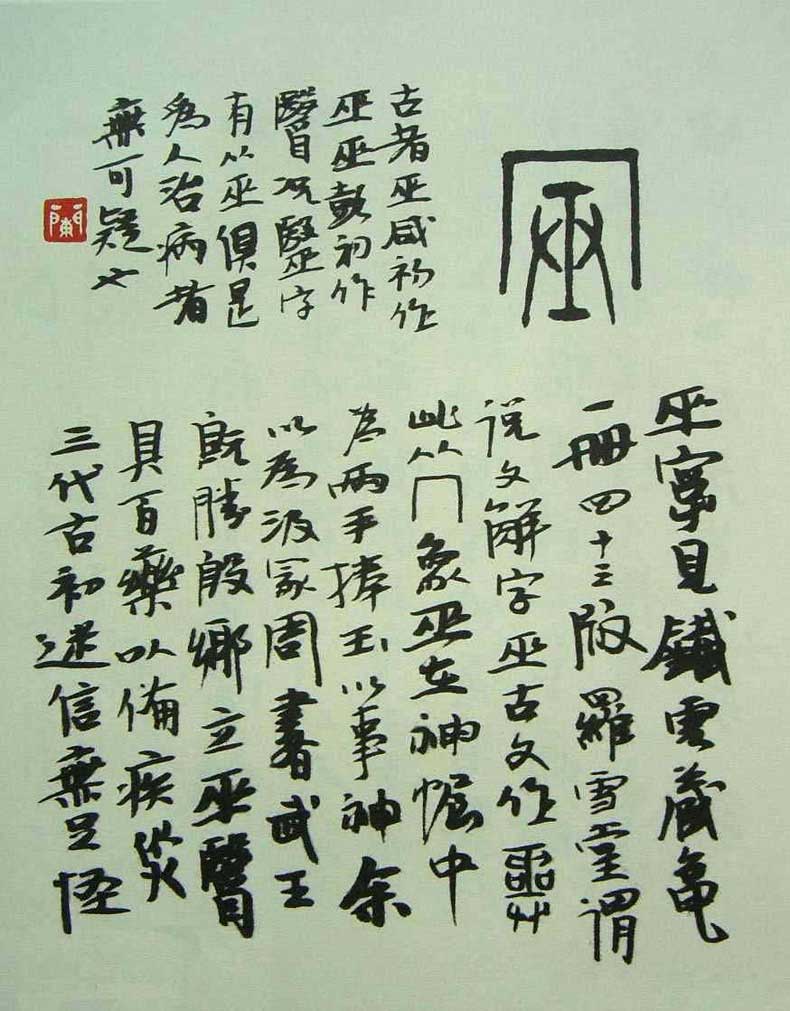 巫見鐵雲藏龜
一冊四十三版羅雪堂謂
说文解字巫古文作
此从冂象巫在神幄中
为兩手捧玉以事神余
以為汲冢周書武王
既勝殷鄉立巫醫
具百藥以備疾災
三代古初迷信無足怪
古者巫咸初作
巫巫彭初作
醫况毉字
有从巫俱是
為人治病者
無可疑也
蘭